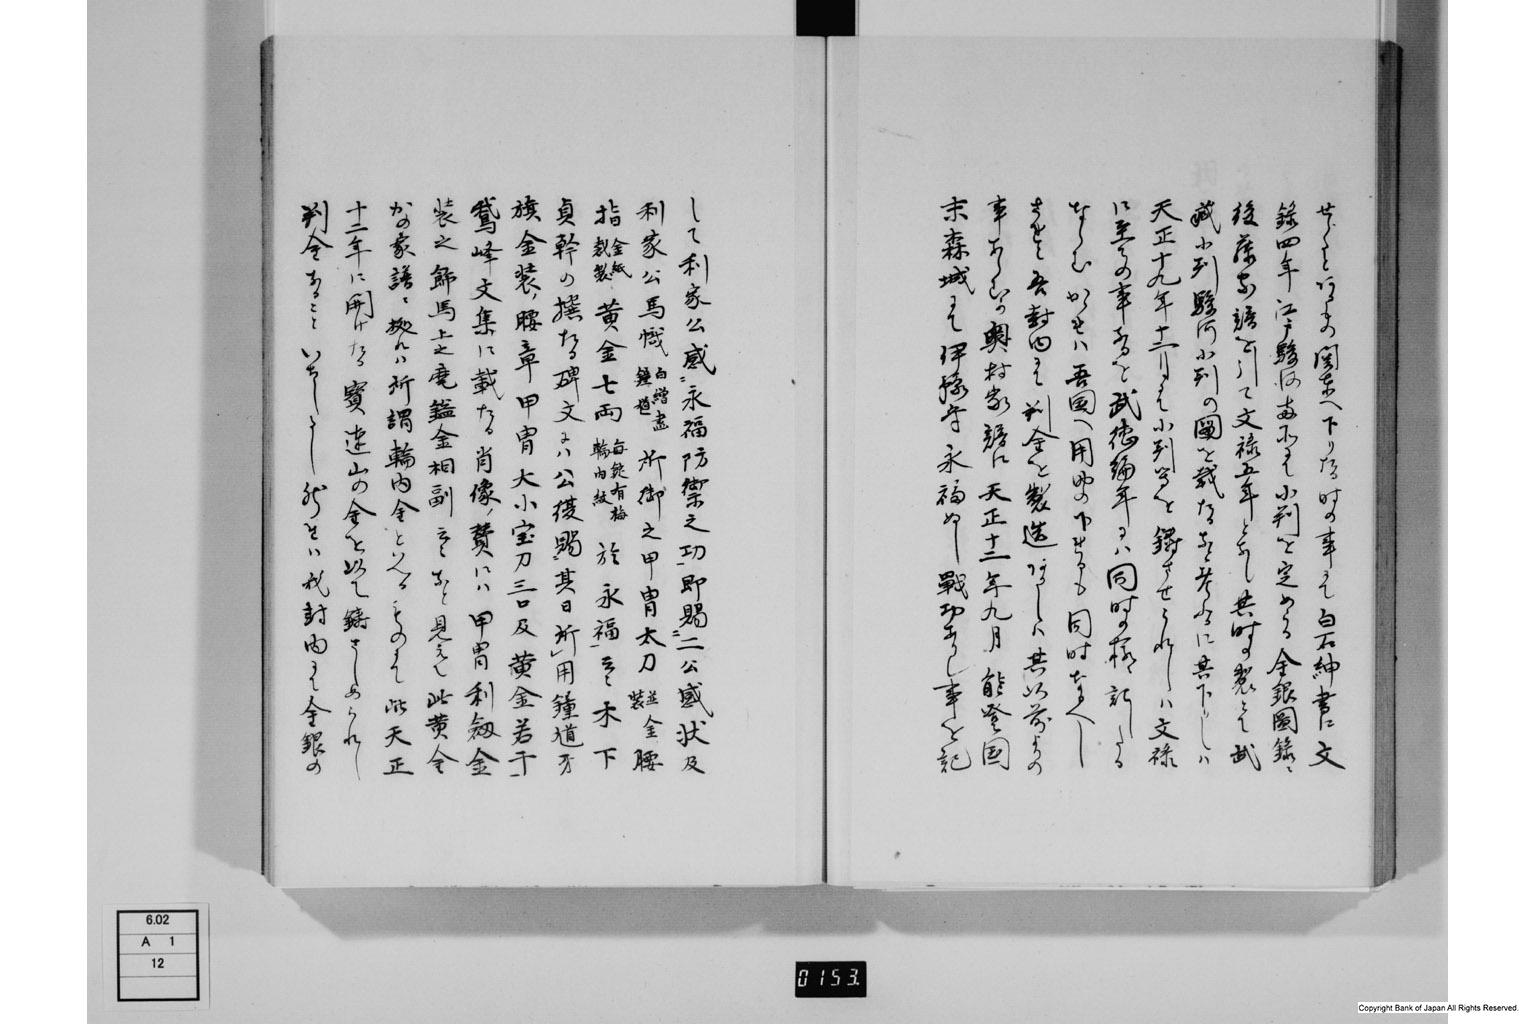 せしといへるは関東へ下りたる時の事にて白石紳書に文
録四年江戸駿河両所にて小判を定めらる金銀図録ニ
後藤家譜を引て文禄五年とあし其時の製とて武
蔵小判駿河小判の図を載たる
天正十九年十二月にて小判等を鋳させられしハ文禄
に至ての事なるを武徳編年には同時の様に記したる
ならむかされハ吾国へ用
吾封内にて判金を製造ありしハ其以前よりの
事あらむか奥村家譜に天正十二年九月能登国
末森城にて伊豫守永福ぬし戦功ありし事を記
して利家公感永福防禦之功即賜二公感状及
利家公馬幟白繒畫鍾馗所御之甲冑太刀並金装腰
指金紙製黄金七両毎錠有梅輪内紋於永福云々木下
貞幹の撰たる碑文にハ公復賜其日所用鐘道字
旗金装腰章甲冑大小宝刀三口及黄金若干
鵞峰文集に載たる肖像賛にハ甲冑利劔金
装之飾馬上之麾鎰金相副云々なと見えて此黄金
かの家譜ニ拠れハ所謂輪内金といへるものにて此天正
十二年に開けたる寶達山の金を以て鋳さしめられし
判金あることいちしるし然れハ我封内にて金銀の
6.02
A 1
12
0153.
Copyright Bank of Japan All Rights Reserved.